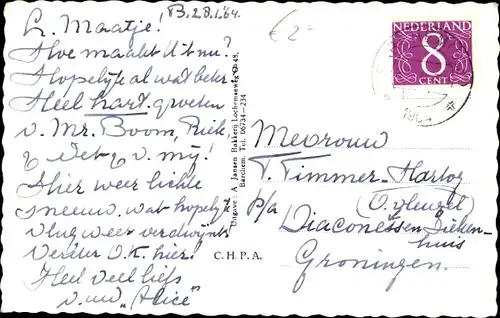 B. 28.1.'64.
L. Maatje!
Hoe maakt U 't nu?
Hopelijk al wat beter.
Heel hart. groeten
v. Mr. Boom, Riek,
& Jet & v. mij!
Hier weer lichte
sneeuw, wat hopelijk
vlug weer verdwijnt.
Verder O.K. hier!
Heel veel liefs
v. uw „Alice"
€ 2-
Uitgave: A Jansen Bakkerij Lochemseweg D 48,
Barchem. Tel. 06734-234
C.H.P.A.
NEDERLAND
8
CENT
Mevrouw
T. Timmer-Hartog
(O. vleugel)
p/a Diaconessen Zieken-
huis
Groningen.